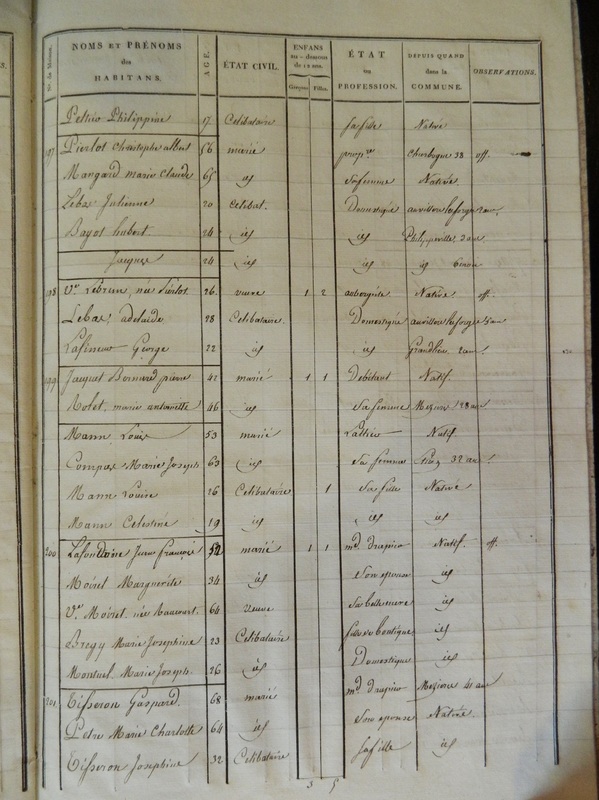 Nos. de Maison. NOMS ET PRÉNOMS des HABITANS. AGE. ÉTAT CIVIL. ENFANS au-dessous de 12 ans. Garçons Filles. ÉTAT ou PROFESSION. DEPUIS QUAND dans la COMMUNE. OBSERVATIONS.
Petrio Philippine 17 Celibataire sa fille Native
197 Pierlot Christophe albert 56 marié prop.re 38 off.
Mangard marie Claude 65 id sa femme Native
Lebas Julienne 20 Celibat. Domestique auvillers les forges 2 ans.
Bayot hubert 24 id id Philippeville, 3 ans
Jacques 24 id id id 6 mois
198 V.e Lebrun, née Pierlot 26 veuve 1 2 aubergiste Native off.
Lebas, adelaide 28 Celibataire. Domestique auvillers les forges 5 ans
George 22 id id 2 ans
199 Jacquet Bernard pierre 42 marié 1 1 Debitant Natif.
Rolet, marie antoinette 46 id sa femme 28 ans
Mann Louis 53 marié Natif
Compas Marie Joseph 63 id sa femme 32 ans
Mann Louise 26 Celibataire 1 sa fille Native
Mann Celestine 19 id id id
200 Lafontaine 52 marié 1 1 m.d drapier Natif. off.
Moiret Marguerite 34 id son epouse id
V.e Moiret née 64 veuve sa belle mere id
Bregy Marie Josephine 23 Celibataire fille de boutique id
Montuel Marie Joseph. 26 id Domestique id
201 Tisseron Gaspard 68 marié m.d drapier Mezieres 41 ans
Petre Marie Charlotte 64 id son epouse Native
Tisseron Josephine 32 Celibataire sa fille id
3 5